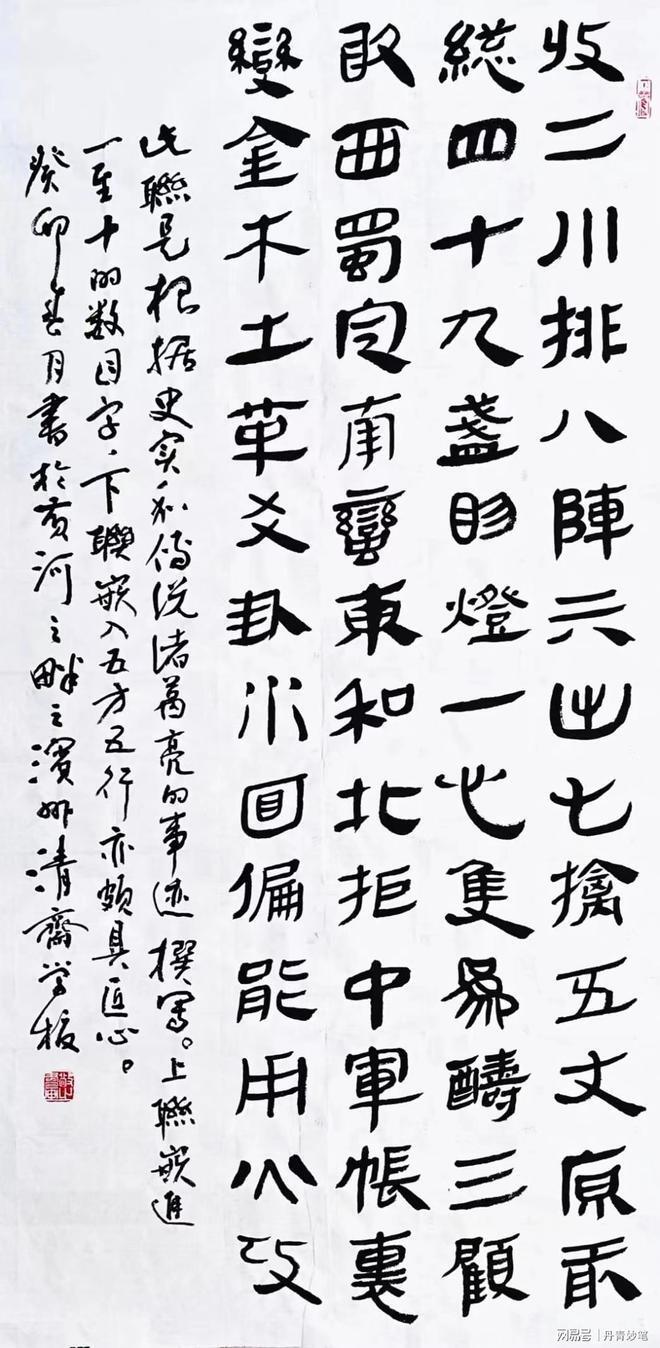 收二川排八陣六出七擒五丈原前
総四十九盞明燈一心隻為醻三顧
取西蜀定南蠻東和北拒中軍帳裏
變金木土革爻卦水面偏能用火攻
此聯是根据史实和傳说诸葛亮的事迹撰写。上聯嵌進
一至十的数目字、下聯嵌入五方五行亦頗具匠心。
癸卯春月書於黄河之畔之濱州清齋
网易号 | 丹青妙笔